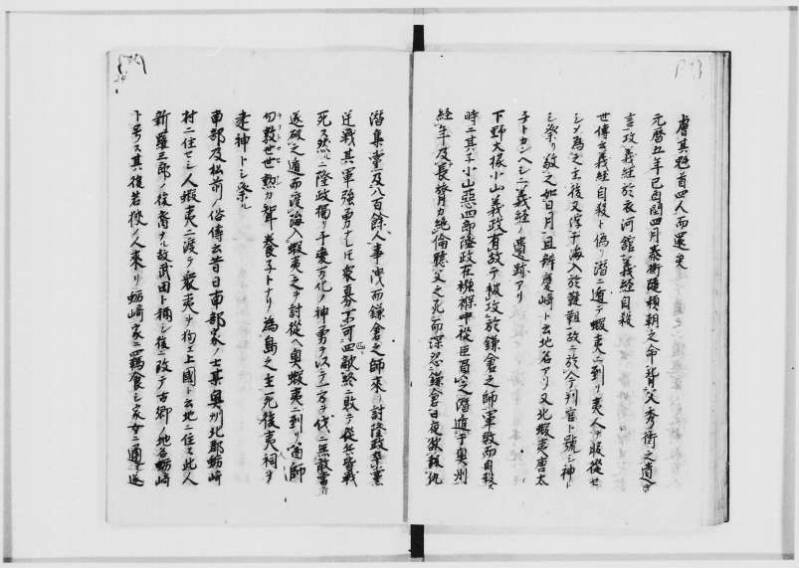 虜其魁首四人而還矣
元暦五年己酉閏四月泰衡随頼朝之命背父秀衡之遺
言攻義経於衣河舘義経自殺
世傳云義経自殺ト偽リ潜ニ遁テ蝦夷ニ到リ夷人ヲ服從セ
シメ為之主後又浮于海入於韃靼故ニ於今判官ト號シ神ト
シ祭リ敬之如日月且辨慶崎ト云地名アリ又北蝦夷唐太
チトカンヘシニ義経ノ遺跡アリ
下野大掾小山義政有故テ被攻於鎌倉之師軍敗而自殺
時ニ其子小山悪四郎隆政在襁褓中從臣負之潜遁于奥州
経年及長膂力絶倫聴父之死而深忿鎌倉日夜欲報仇
潜集黨及八百餘人事洩而鎌倉之師來リ討隆政聚黨
逆戦其軍強勇ナレ㆑衆寡不可敵終ニ敗テ從兵皆戦
死ス然ルニ隆政獨リ千変万化ノ神勇ヲ以テ一方ヲ伐ニ無敵者
遂破之遁而渡海入蝦夷之ヲ討從ヘ奥蝦夷ニ到リ
養子トナリ為島之主死後夷祠ヲ
建神トシ祭ル
南部及松前ノ俗傳云昔日南部家ノ士某奥州北郡蛎崎
村ニ住セシ人蝦夷ニ渡テ衆夷ヲ拘エ上國ト云地ニ住ス此人
新羅三郎ノ後裔ナル故武田ト稱シ後ニ改テ古郷ノ地名蛎崎
ト号ス其後若狹ノ人來リ蛎崎家ニ羇食シ家女ニ通シ遂